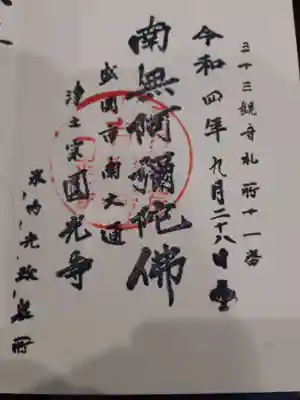 三十三観音札所十一番
令和四年九月二十八日
南無阿彌陀佛
盛岡市南大通
浄土宗圓光寺
米内光政墓所